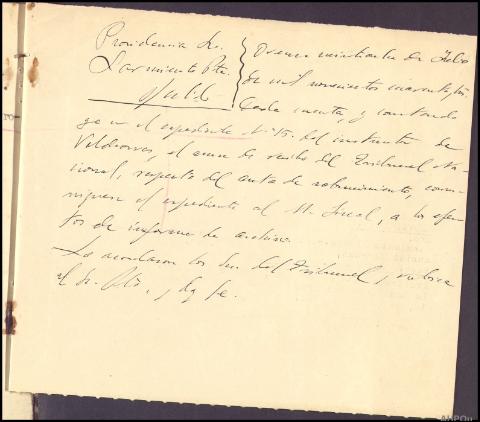 Providencia Sr.
Sarmiento Pte.
Orense veintiseite de Julio
de mil novecientos cuarenta y
Dada cuenta, y
el expediente nº 15. del instructor de
Valdeorras, el acuse de recibo del Tribunal Na-
cional, respecto del auto de sobreseimiento, comu-
níquese el expediente al M. Fiscal, a los efec-
tos de informe de archivo.
Lo acordaron los Sres. del Tribunal, y rubrica
el Sr. Pte., y doy fe.
AHPOu